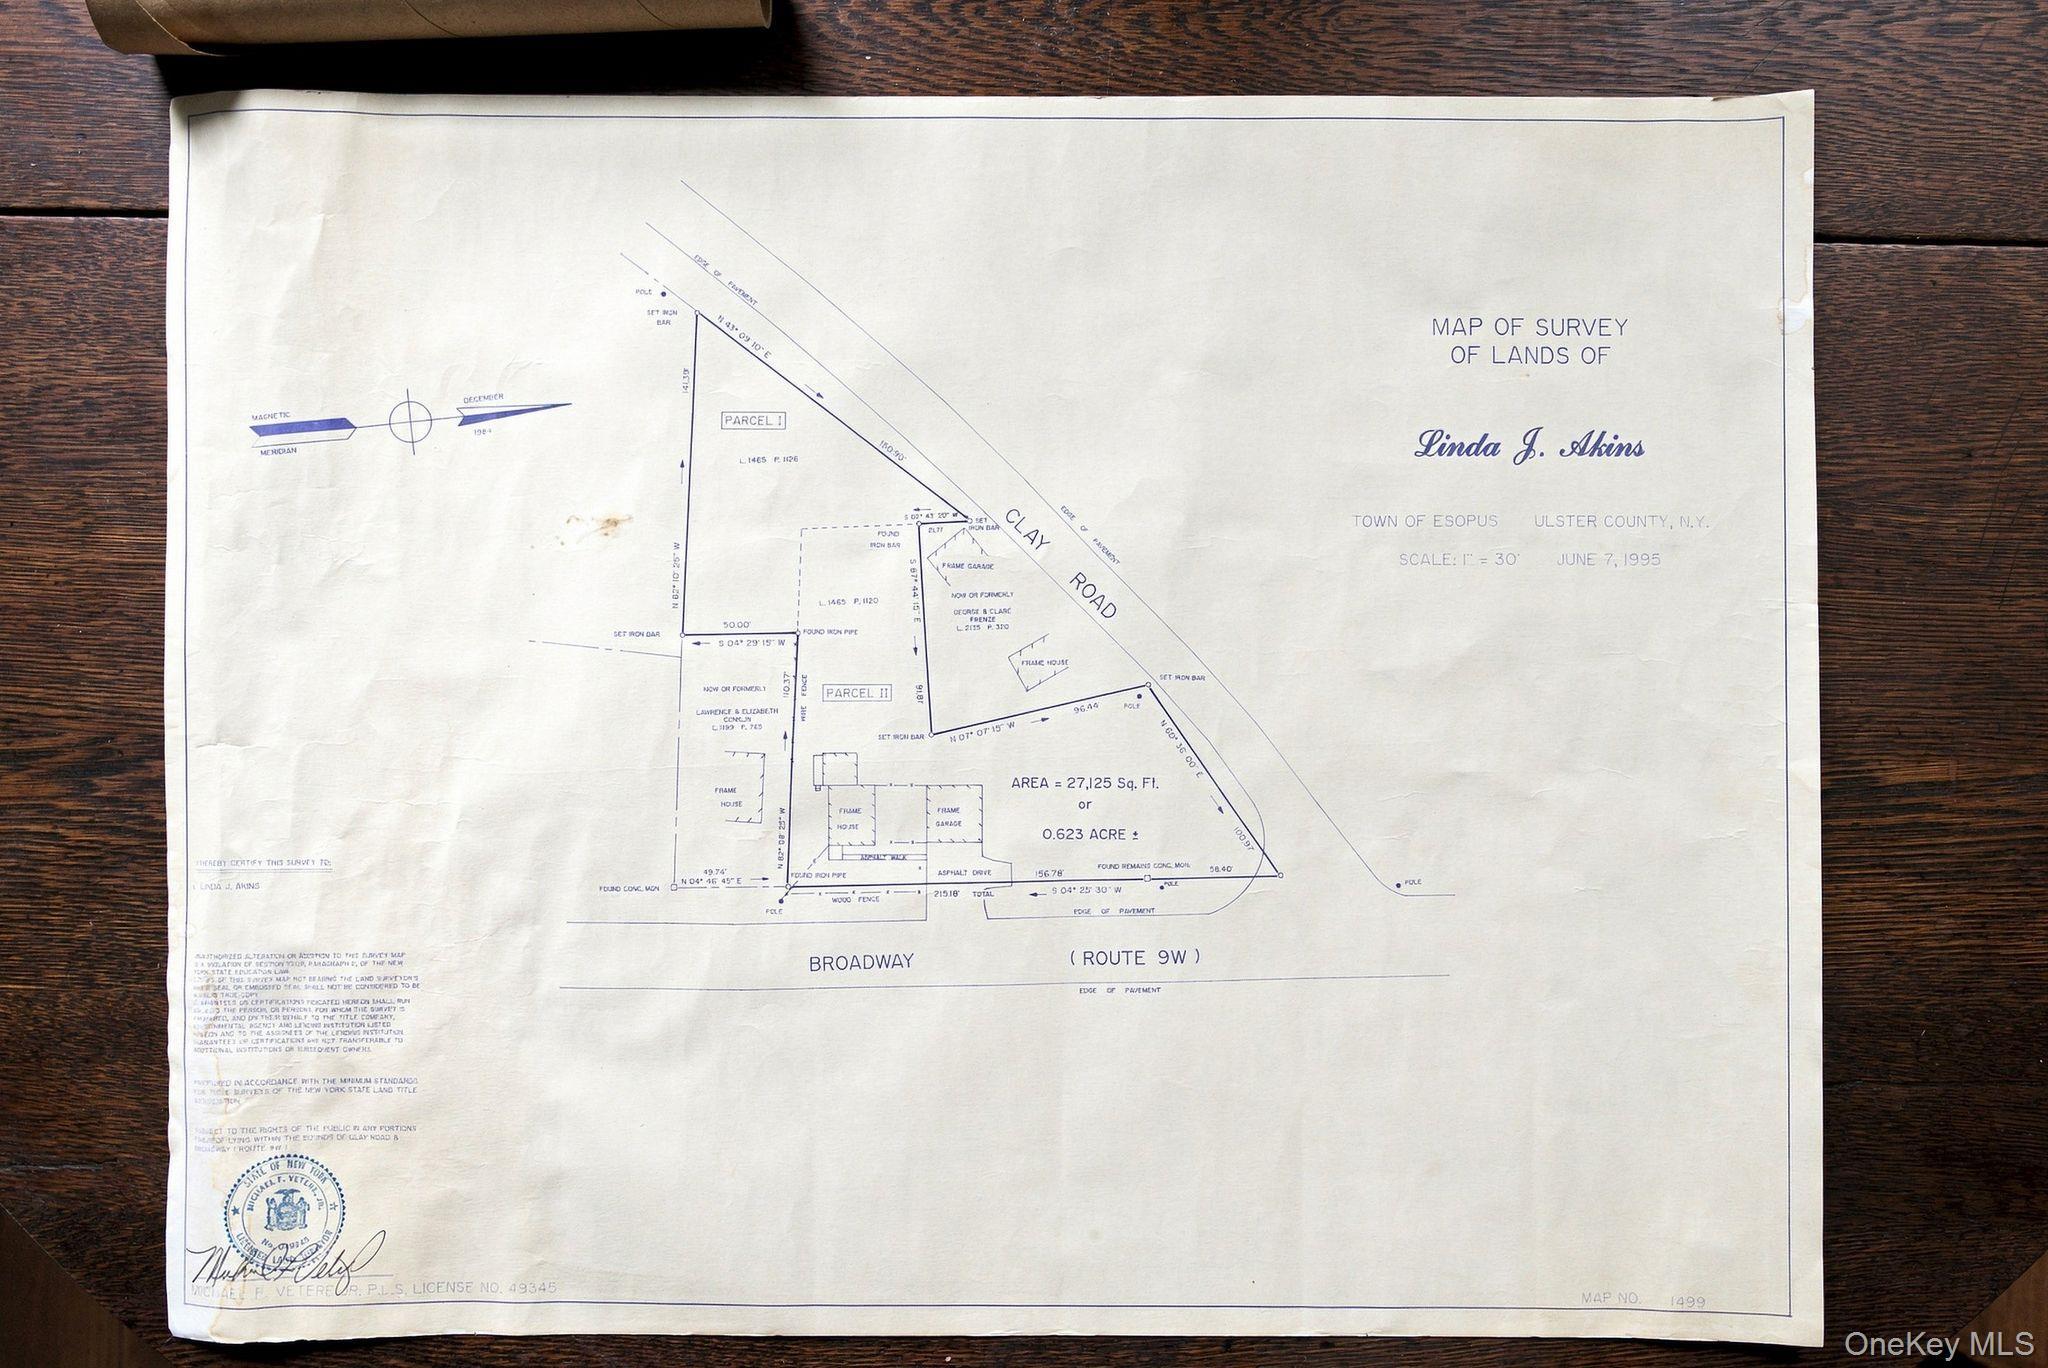 MAP OF SURVEY
OF LANDS OF
Linda J. Akins
TOWN OF ESOPUS ULSTER COUNTY, N.Y.
SCALE: 1" = 30' JUNE 7, 1995
MAGNETIC
MERIDIAN
DECEMBER
1984
EDGE OF PAVEMENT
POLE
SET IRON
BAR
N 43° 09' 10" E
141.39'
PARCEL I
L. 1465 P. 1126
N 82° 10' 25" W
S 02° 43' 20" W
21.77
SET
IRON BAR
FOUND
IRON BAR
CLAY
ROAD
EDGE OF PAVEMENT
FRAME GARAGE
NOW OR FORMERLY
GEORGE & CLARE
FRENZE
S 87° 44' 15" E
91.81'
L. 1465 P. 1120
50.00'
SET IRON BAR
S 04° 29' 15" W
FOUND IRON PIPE
FRAME HOUSE
SET IRON BAR
POLE
NOW OR FORMERLY
LAWRENCE & ELIZABETH
CONKLIN
L. 1199 P. 765
110.37'
WIRE FENCE
PARCEL II
SET IRON BAR
N 07° 07' 15" W
96.44'
N 60° 36' 00" E
100.97'
FRAME
HOUSE
FRAME
HOUSE
FRAME
GARAGE
AREA = 27,125 Sq. Ft.
or
0.623 ACRE ±
N 82° 08' 25" W
ASPHALT WALK
ASPHALT DRIVE
FOUND REMAINS CONC. MON.
49.74'
N 04° 46' 45" E
FOUND CONC. MON.
FOUND IRON PIPE
156.78'
58.40'
S 04° 25' 30" W
215.18' TOTAL
WOOD FENCE
POLE
POLE
POLE
EDGE OF PAVEMENT
BROADWAY (ROUTE 9W)
EDGE OF PAVEMENT
I HEREBY CERTIFY THIS SURVEY TO:
LINDA J. AKINS
ALTERATION OR ADDITION TO THIS SURVEY MAP
PARAGRAPH 2, OF THE NEW
YORK STATE EDUCATION LAW.
OF THIS SURVEY MAP NOT BEARING THE LAND SURVEYOR'S
SEAL OR EMBOSSED SEAL SHALL NOT BE CONSIDERED TO BE
TRUE COPY.
OR CERTIFICATIONS INDICATED HEREON SHALL RUN
THE PERSON, OR PERSONS, FOR WHOM THE SURVEY IS
AND ON THEIR BEHALF TO THE TITLE COMPANY,
AGENCY AND LENDING INSTITUTION LISTED
AND TO THE ASSIGNEES OF THE LENDING INSTITUTION.
OR CERTIFICATIONS ARE NOT TRANSFERABLE TO
ADDITIONAL INSTITUTIONS OR SUBSEQUENT OWNERS.
PREPARED IN ACCORDANCE WITH THE MINIMUM STANDARDS
SURVEYS OF THE NEW YORK STATE LAND TITLE
TO THE RIGHTS OF THE PUBLIC IN ANY PORTIONS
LYING WITHIN THE BOUNDS OF CLAY ROAD &
BROADWAY (ROUTE 9W)
STATE OF NEW YORK
MICHAEL F. VETERE, JR.
LICENSED LAND SURVEYOR
MICHAEL F. VETERE JR. P.L.S. LICENSE NO. 49345
MAP NO. 1499
OneKey MLS